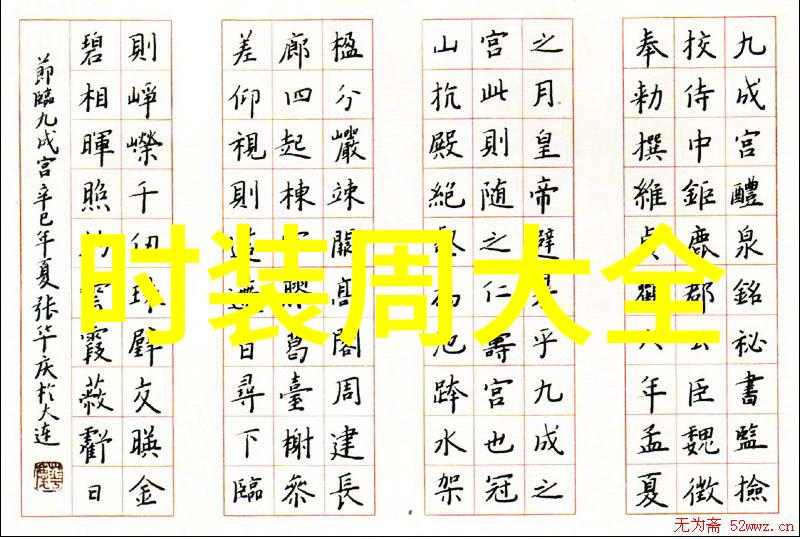 九成宮醴泉銘秘書監撿
挍侍中鉅鹿郡公臣魏徵
奉勑撰維貞觀六年孟夏
之月皇帝避暑乎九成之
宮此則随之仁壽宮也冠
山抗殿絕壑為池跨水架
楹分巖竦闕高閣周建長
廊四起棟宇膠葛臺榭參
差仰視則迢遰百尋下臨
則崢嶸千仞珠璧交暎金
碧相暉照灼雲霞蔽虧日
節臨九成宮辛巳年夏張华庆於大連
时装周大全
无为斋 52wwz.cn